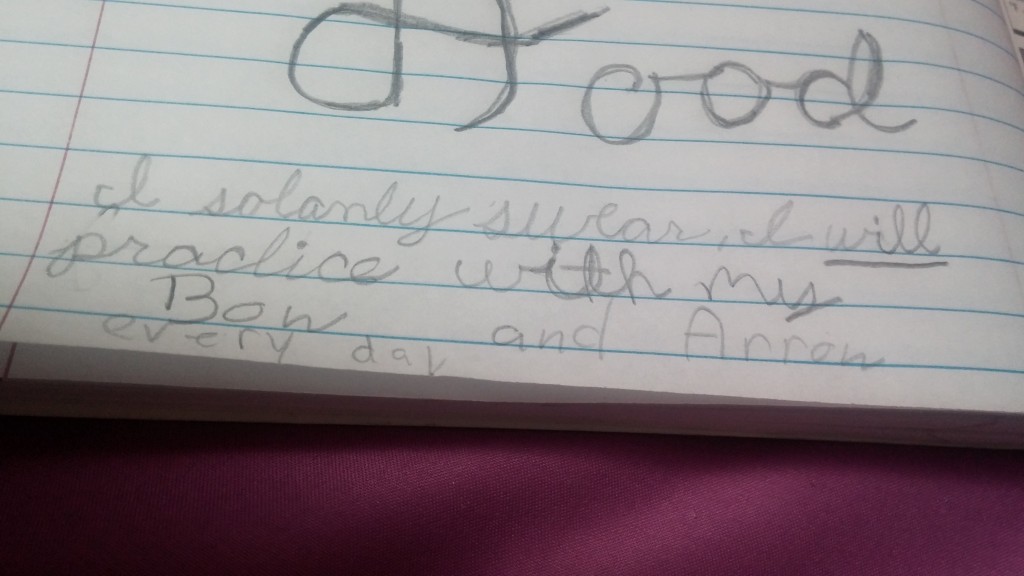 Hood
I solanly swear, I will
practice with my
Bow and Arrow
every day